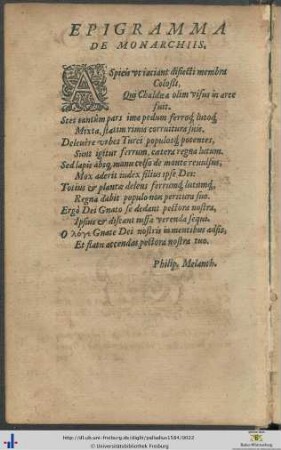 EPIGRAMMA
DE MONARCHIIS.
ASpicis vt iaceant disiecti membra
Colossi,
Qui Chaldæa olim visus in arce
fuit.
Stat tantùm pars ima pedum ferroq; lutoq;
Mixta, statim rimis corruitura suis.
Deleuere vrbes Turci populosq; potentes,
Sunt igitur ferrum, cætera regna lutum.
Sed lapis absq; manu celso de monte reuulsus,
Mox aderit iudex filius ipse Dei:
Totius & plantæ delens ferrumq; lutumq;,
Regna dabit populo non peritura suo.
Ergò Dei Gnato se dedant pectora nostra,
Ipsius & discant iussa verenda sequi.
O λόγε Gnate Dei nostris in mentibus adsis,
Et flatu accendas pectora nostra tuo.
Philip. Melanth.
http://dl.ub.uni-freiburg.de/diglit/palladius1584/0022
© Universitätsbibliothek Freiburg